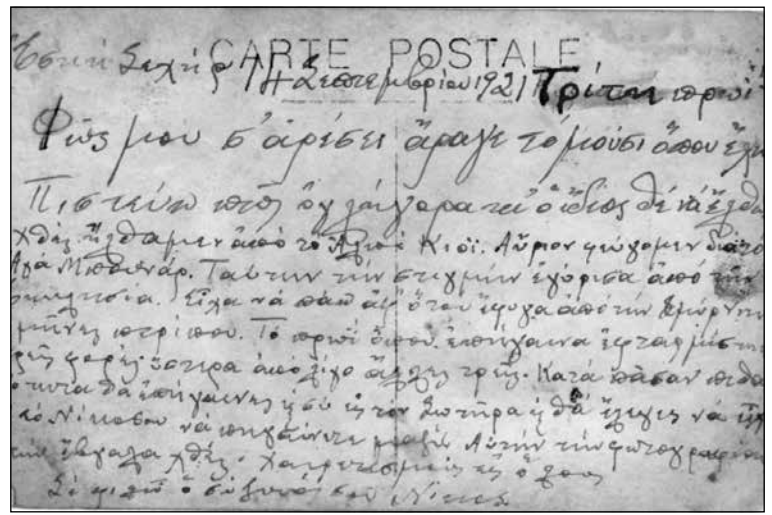 CARTE POSTALE
Ἐσκή Σεχήρ 14 Σεπτεμβρίου 1921 Τρίτη πρωΐ
Φῶς μου σ' ἀρέσει ἄραγε τό μούσι ὅπου
Πιστεύω πῶς ὀγλήγορα καί ὁ ἴδιος θέ νά ἔλθω
χθές ἤλθαμεν ἀπό τό Κιοϊ. Αὔριον φεύγομεν διά τό
Μπουνάρ. Ταύτην τήν στιγμήν ἐγύρισα ἀπό τήν
Εἶχα νά πάω ἀφ' ὅτου ἔφυγα ἀπό τήν Σμύρνην
Τό πρωΐ ὅπου ἐπήγαινα
φορές ὕστερα ἀπό λίγο ἄλλες τρεῖς. Κατά πᾶσαν
θά ἐπήγαινες καί σύ εἰς τόν Σωτῆρα ἤ θά ἔλεγες νά
Νῖκο σου νά πηγαίνετε μαζύ. Αὐτήν τήν φωτογραφίαν
τήν ἔβγαλα χθές. Χαιρετισμούς εἰς ὅλους
Σέ φιλῶ ὁ σύζυγός σου Νῖκος